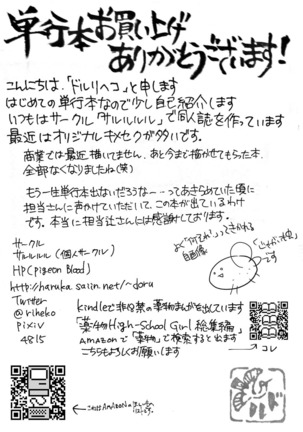 単行本お買い上げ
ありがとうございます！
こんにちは、「ドルリヘコ」と申します
はじめての単行本なので少し自己紹介します
いつもはサークル「サルルルル」で同人誌を作っています
最近はオリジナルキメセクが多いです。
商業では最近、描いてません、あと今まで描かせてもらった本、
全部なくなりましたね（笑）
もう一生単行本出ないだろうな・・・ってあきらめていた頃に
担当さんに声かけていただいて、この本が出ているわけ
です。本当に担当さんには感謝しております。
よく「何それ」ってきかれる
自画像
「じゃがいも」
です
サークル
サルルルル（個人サークル）
HP（Pigeon Blood）
http://haruka.saiin.net/~doru
Twitter
@riheko
pixiv
4815
kindleで非18禁の薬物まんがを出しています
「薬物High-School Girl 総集編」
Amazonで「薬物」で検索すると出ます
こちらもよろしくお願いします
←コレ